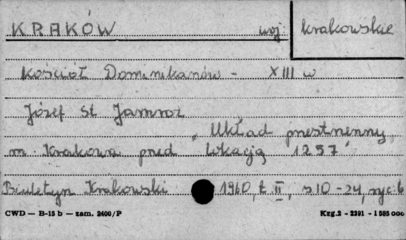 KRAKÓW woj. krakowskie
Kościół Dominikanów - XIII w
Józef St Jamroz
"Układ przestrzenny
m. Krakowa przed lokacją 1257"
Biuletyn Krakowski 1960, t II, s 10-24, ryc 6
CWD — B-15 b — zam. 2400/P Kzg.2 - 2291 - 1 505 000